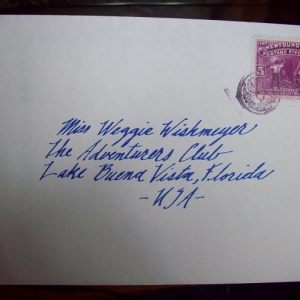 NEWFOUND
POSTAGE FIVE
5
Miss Weggie Wishmeyer
The Adventurers Club
Lake Buena Vista, Florida
-USA-